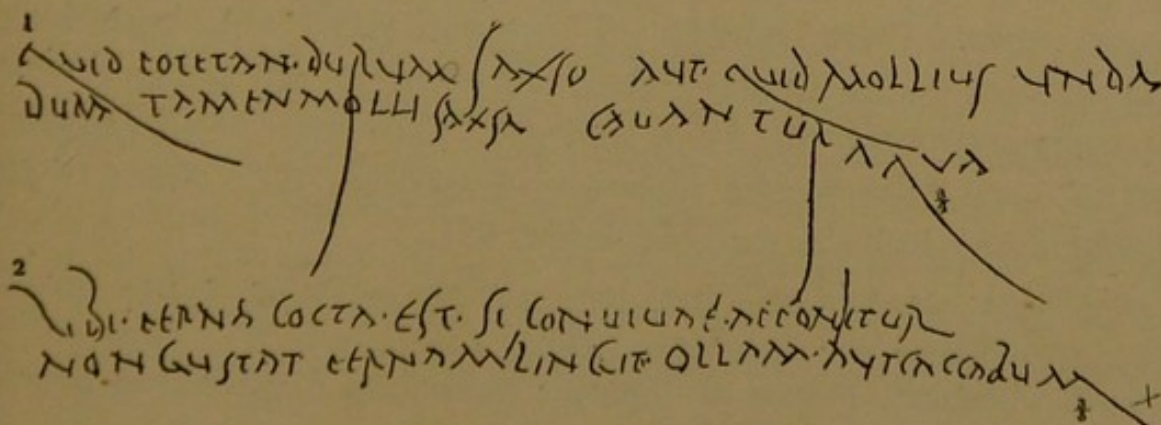 1
QUID POTE TAN·DURUM SAXSO AUT· QUID MOLLIUS UNDA
DURA TAMEN MOLLI SAXSA CAUANTUR AQUA
2
UBI· PERNA COCTA·EST· SI CONUIUAE·APPONITUR
NON GUSTAT PERNAM LINGIT· OLLAM·AUT CACCABUM